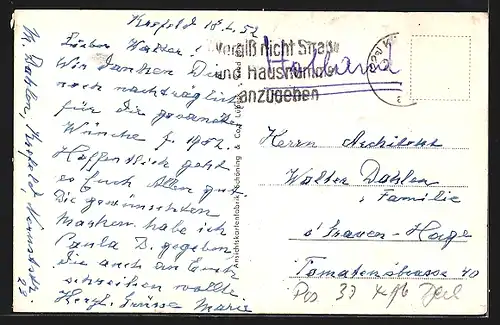 Krefeld 18.1.52
Lieber Walter!
Wir danken Dir
noch nachträglich
für die
Wünsche f. 1952.
Hoffentlich geht
es Euch Allen gut.
Die gewünschten
Marken habe ich
Paula D. gegeben,
die auch an Euch
schreiben wollte.
Herzl. Grüsse Marie
M. Dahlen, Krefeld,
23
Vergiß nicht Straße
und Hausnummer
anzugeben
Holland
Ansichtskartenfabrik Schöning & Co., Lübeck
Herrn Architekt
Walter Dahlen
u. Familie
s'Graven-Hage
Tomatenstrasse 40